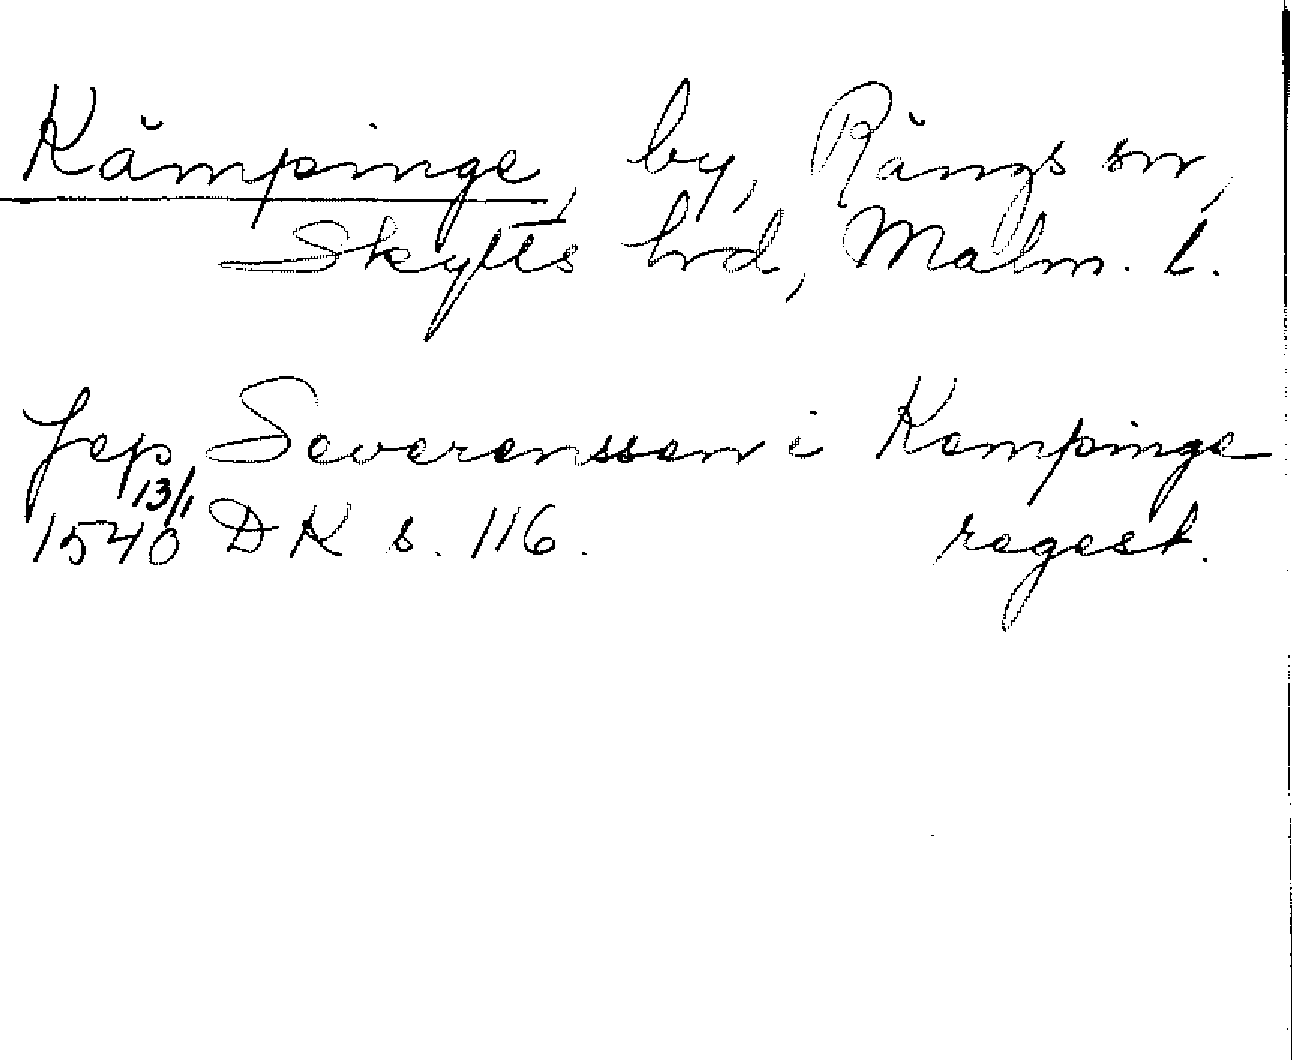 Kämpinge, by, Rängs sn,
Skytts hd, Malm. l.
Jep Severenssen i Kempinge
13/1
1540 DK s. 116. regest.